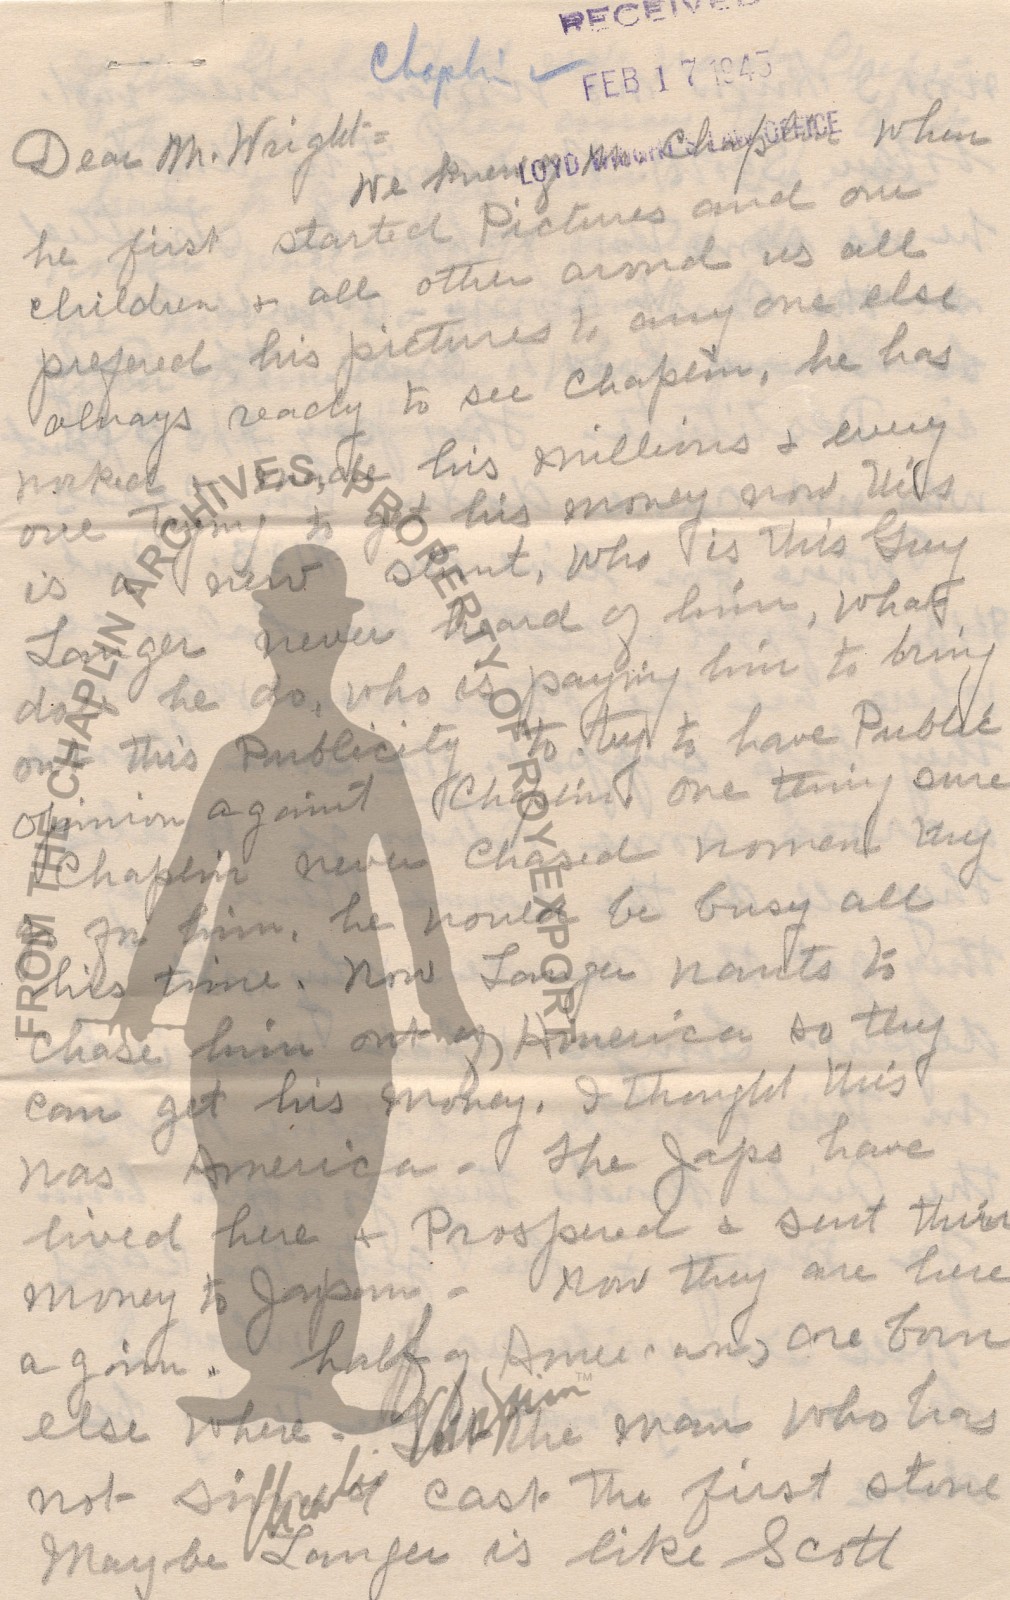 RECEIVED
Chaplin ✓
FEB 17 1945
LOYD WRIGHT'S LAW OFFICE
Dear Mr. Wright =
We knew Mr Chaplin when
he first started Pictures and our
children & all other around us all
prefered his pictures to any one else
always ready to see Chaplin, he has
worked & made his millions & every
one trying to get his money now this
is a new stunt, Who is this Guy
Langer never heard of him, what
does he do, who is paying him to bring
out this Publicity to try to have Public
opinion against Chaplin, one thing sure
Chaplin never chased women they
go for him, he would be busy all
his time. Now Langer wants to
chase him out of America so they
can get his money. I thought this
was America - The Japs have
lived here & Prospered & sent their
money to Japan - Now they are here
again. half of Americans are born
else where - Let the man who has
not sinned cast the first stone
Maybe Langer is like Scott
FROM THE CHAPLIN ARCHIVES, PROPERTY OF ROY EXPORT
Charles Chaplin™